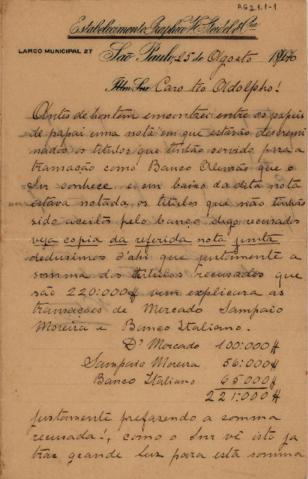 AG2.1.1-1
Estabelecimento Graphico
LARGO MUNICIPAL 27
São Paulo, 25 de Agosto
Illm Snr Caro tio Adolpho!
Antes de hontem encontrei entre os papeis
de papai uma nota em que estavão
os titulos que tinhão servido para a
transação com o Banco Alemão que o
Snr conhece e em baixo da dita nota
estava notada, os titulos que não tinhão
sido aceitos pelo banco digo recusados
veja copia da referida nota junta
deduzimos d'ahi que justamente a
somma dos titulos recusados que
são 220:000$ vem explicar as
transações de Mercado Sampaio
Moreira e Banco Italiano.
D' Mercado 100:000$
Sampaio Moreira 56:000$
Banco Italiano 65000$
221:000$
justamente prefazendo a somma
recusada!, como o Snr vê isto ja
traz grande luz para esta somma